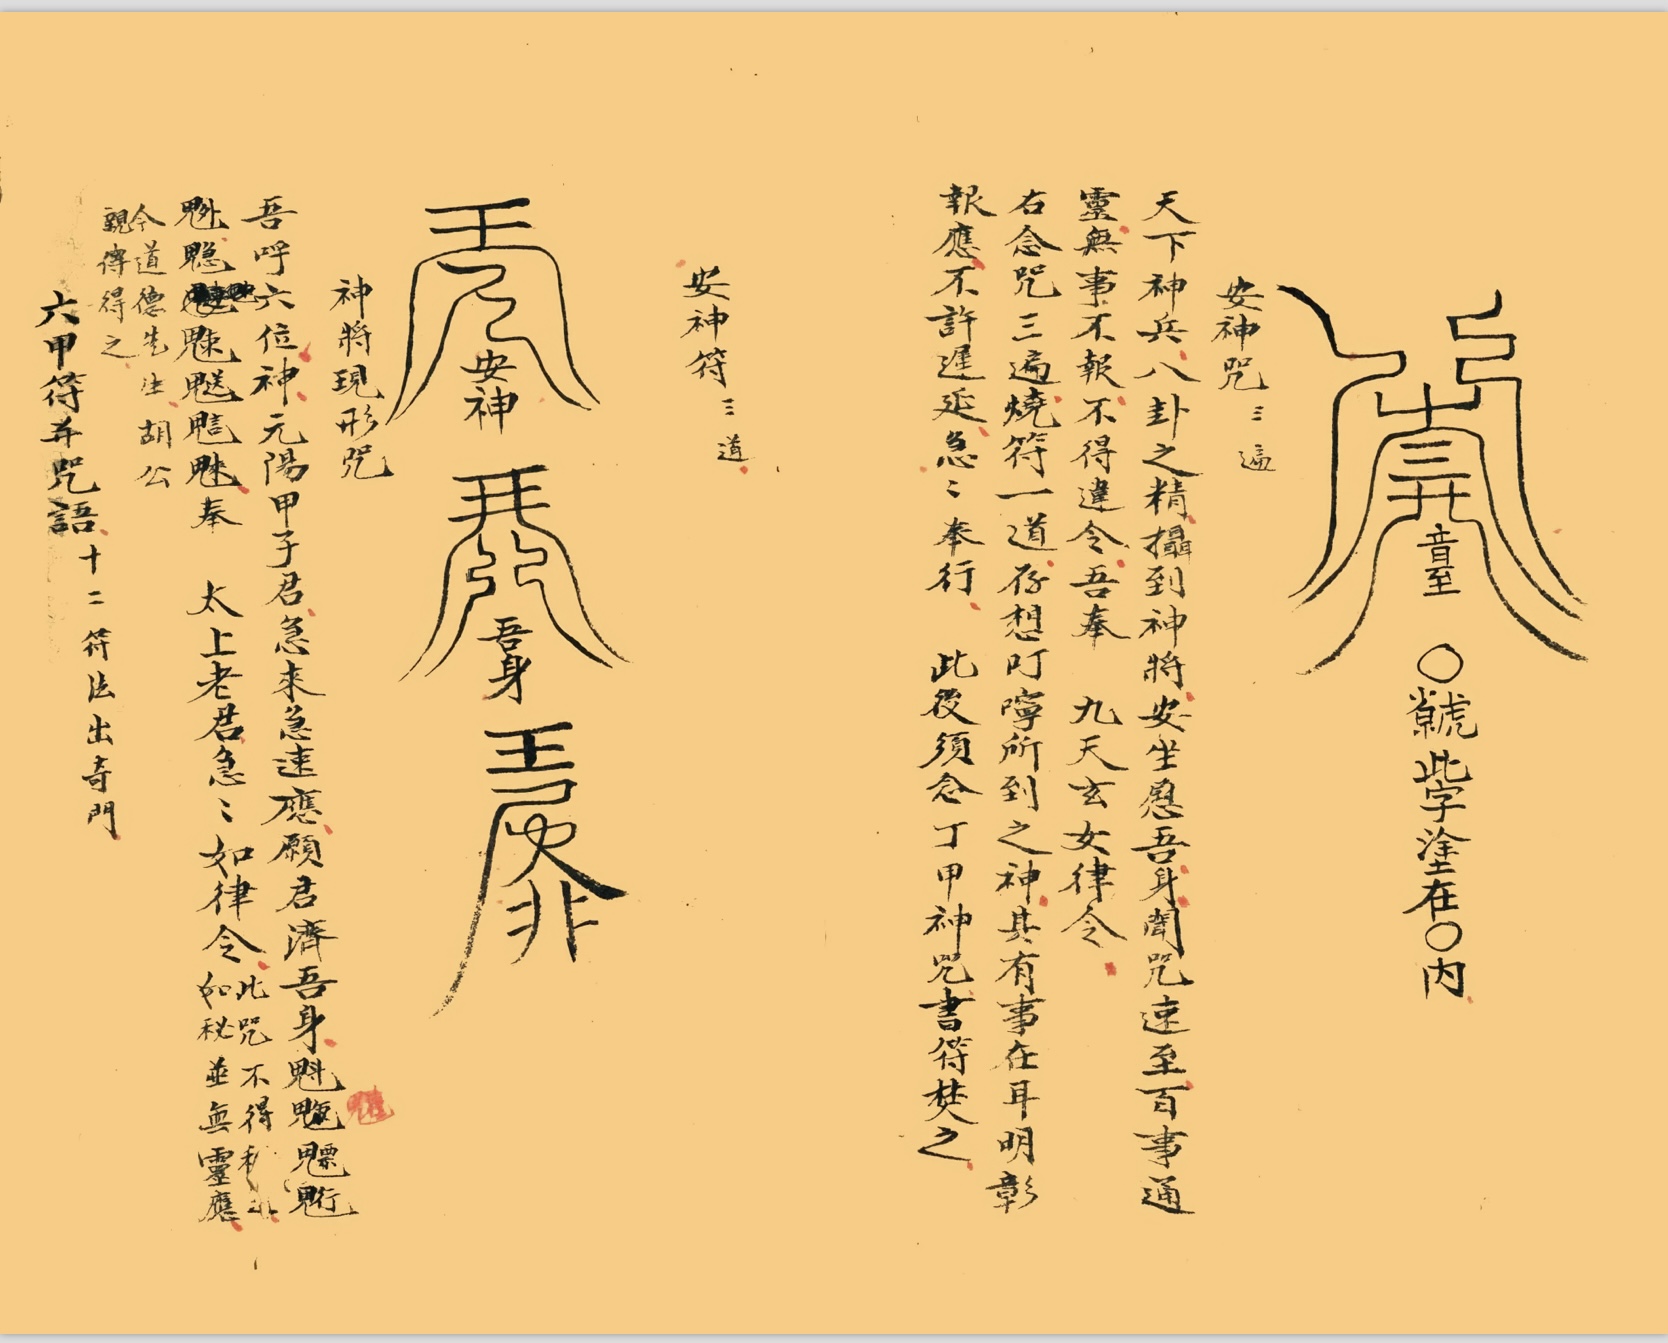 音至
○
虩此字塗在○内
安神咒三遍
天下神兵八卦之精攝到神將安坐愚吾身聞咒速至百事通
靈無事不報不得違令吾奉 九天玄女律令
右念咒三遍燒符一道存想叮嚀所到之神具有事在耳明彰
報應不許遲延急〻奉行 此後須念丁甲神咒書符焚之
安神符三道
安神
吾身
神將現形咒
吾呼六位神元陽甲子君急來急速應願君濟吾身魁
奉 太上老君急〻如律令
此咒不得
如秘並無靈應
今道德先生胡公
親傳得之
六甲符并咒語十二符法出奇門